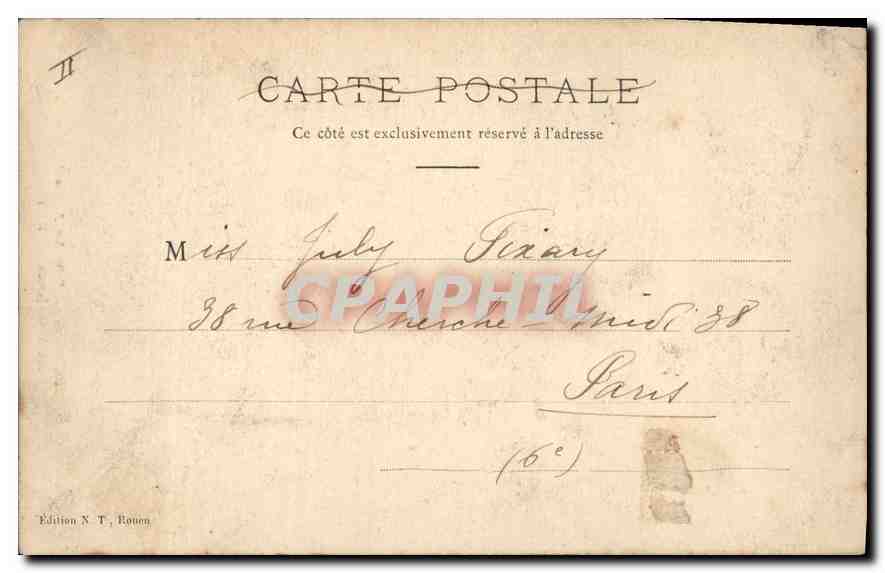 II
CARTE POSTALE
Ce côté est exclusivement réservé à l'adresse
Miss July Fixary
CPAPHIL
38 rue Cherche-Midi 38
Paris
(6e)
Édition N. T., Rouen